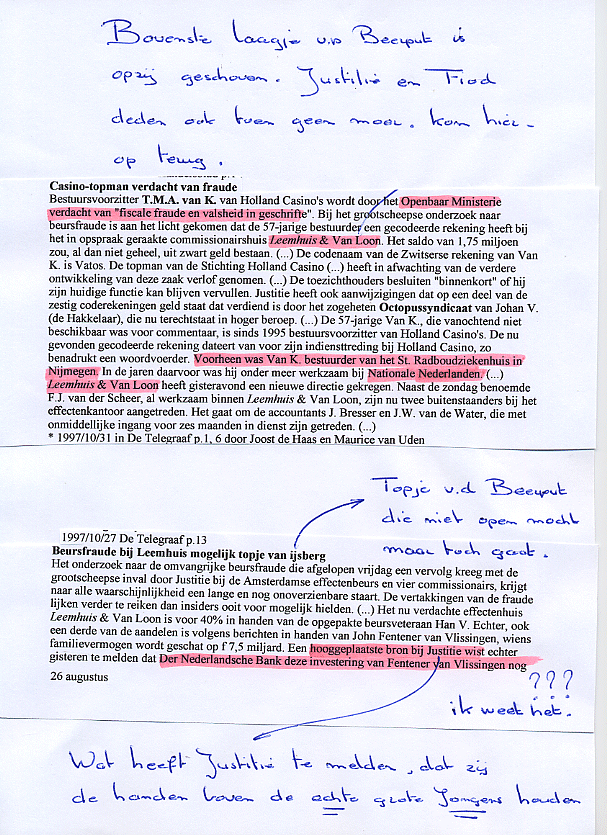 Bovenste laagje v.d Beerput is
opzij geschoven. Justitie en Fiod
deden ook toen geen moer. kom hier-
op terug.
Casino-topman verdacht van fraude
Bestuursvoorzitter T.M.A. van K. van Holland Casino's wordt door het Openbaar Ministerie
verdacht van "fiscale fraude en valsheid in geschrifte". Bij het grootscheepse onderzoek naar
beursfraude is aan het licht gekomen dat de 57-jarige bestuurder een gecodeerde rekening heeft bij
het in opspraak geraakte commissionairshuis Leemhuis & Van Loon. Het saldo van 1,75 miljoen
zou, al dan niet geheel, uit zwart geld bestaan. (...) De codenaam van de Zwitserse rekening van Van
K. is Vatos. De topman van de Stichting Holland Casino (...) heeft in afwachting van de verdere
ontwikkeling van deze zaak verlof genomen. (...) De toezichthouders besluiten "binnenkort" of hij
zijn huidige functie kan blijven vervullen. Justitie heeft ook aanwijzigingen dat op een deel van de
zestig coderekeningen geld staat dat verdiend is door het zogeheten Octopussyndicaat van Johan V.
(de Hakkelaar), die nu terechtstaat in hoger beroep. (...) De 57-jarige Van K., die vanochtend niet
beschikbaar was voor commentaar, is sinds 1995 bestuursvoorzitter van Holland Casino's. De nu
gevonden gecodeerde rekening dateert van voor zijn indiensttreding bij Holland Casino, zo
benadrukt een woordvoerder. Voorheen was Van K. bestuurder van het St. Radboudziekenhuis in
Nijmegen. In de jaren daarvoor was hij onder meer werkzaam bij Nationale Nederlanden. (...)
Leemhuis & Van Loon heeft gisteravond een nieuwe directie gekregen. Naast de zondag benoemde
F.J. van der Scheer, al werkzaam binnen Leemhuis & Van Loon, zijn nu twee buitenstaanders bij het
effectenkantoor aangetreden. Het gaat om de accountants J. Bresser en J.W. van de Water, die met
onmiddellijke ingang voor zes maanden in dienst zijn getreden. (...)
* 1997/10/31 in De Telegraaf p.1, 6 door Joost de Haas en Maurice van Uden
Topje v.d Beerput
die niet open mocht
maar toch gaat.
1997/10/27 De Telegraaf p.13
Beursfraude bij Leemhuis mogelijk topje van ijsberg
Het onderzoek naar de omvangrijke beursfraude die afgelopen vrijdag een vervolg kreeg met de
grootscheepse inval door Justitie bij de Amsterdamse effectenbeurs en vier commissionairs, krijgt
naar alle waarschijnlijkheid een lange en nog onoverzienbare staart. De vertakkingen van de fraude
lijken verder te reiken dan insiders ooit voor mogelijk hielden. (...) Het nu verdachte effectenhuis
Leemhuis & Van Loon is voor 40% in handen van de opgepakte beursveteraan Han V. Echter, ook
een derde van de aandelen is volgens berichten in handen van John Fentener van Vlissingen, wiens
familievermogen wordt geschat op f 7,5 miljard. Een hooggeplaatste bron bij Justitie wist echter
gisteren te melden dat Der Nederlandsche Bank deze investering van Fentener van Vlissingen nog
26 augustus
???
ik weet het.
Wat heeft Justitie te melden, dat zij
de handen boven de echte grote Jongens houden